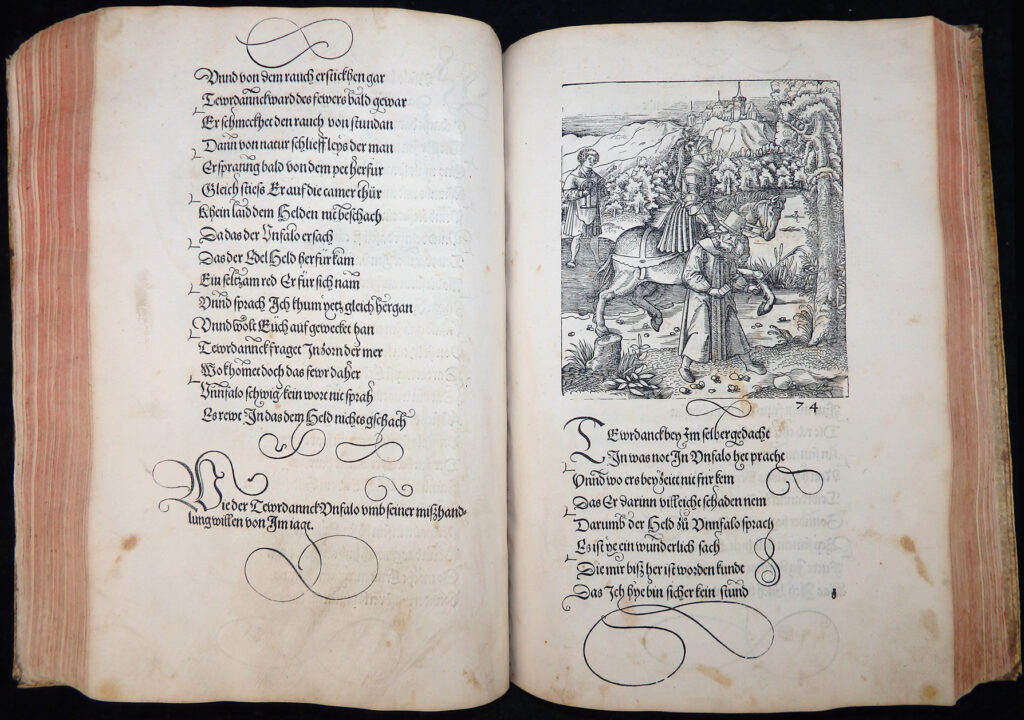 Vnnd von dem rauch erstickhen gar
Tewrdannck ward des fewers bald gewar
Er schmeckhet den rauch von stundan
Dann von natur schlieff leys der man
Er spranng bald von dem pet herfur
Gleich stieß Er auf die camer thür
Khein laid dem Helden nit beschach
Da das der Vnfalo ersach
Das der Edel Held herfür kam
Ein seltzam red Er für sich nam
Vnnd sprach Ich khum yetz gleich hergan
Vnnd wolt Eüch auf gewecket han
Tewrdannck fraget In zorn der mer
Wo khomet doch das fewr daher
Vnnfalo schwig kein wort nit sprach
Es rewt In das dem Held nichts gschach
Wie der Tewrdannck Vnfalo vmb seiner mißhand-
lung willen von Im iagt.
74
TEwrdanck bey Im selber gedacht
In was not In Vnfalo het pracht
Vnnd wo ers bey zeit nit für kem
Das Er darinn villeicht schaden nem
Darumb der Held zů Vnnfalo sprach
Es ist ye ein wunderlich sach
Die mir biß her ist worden kundt
Das Ich hye bin sicher kein stund